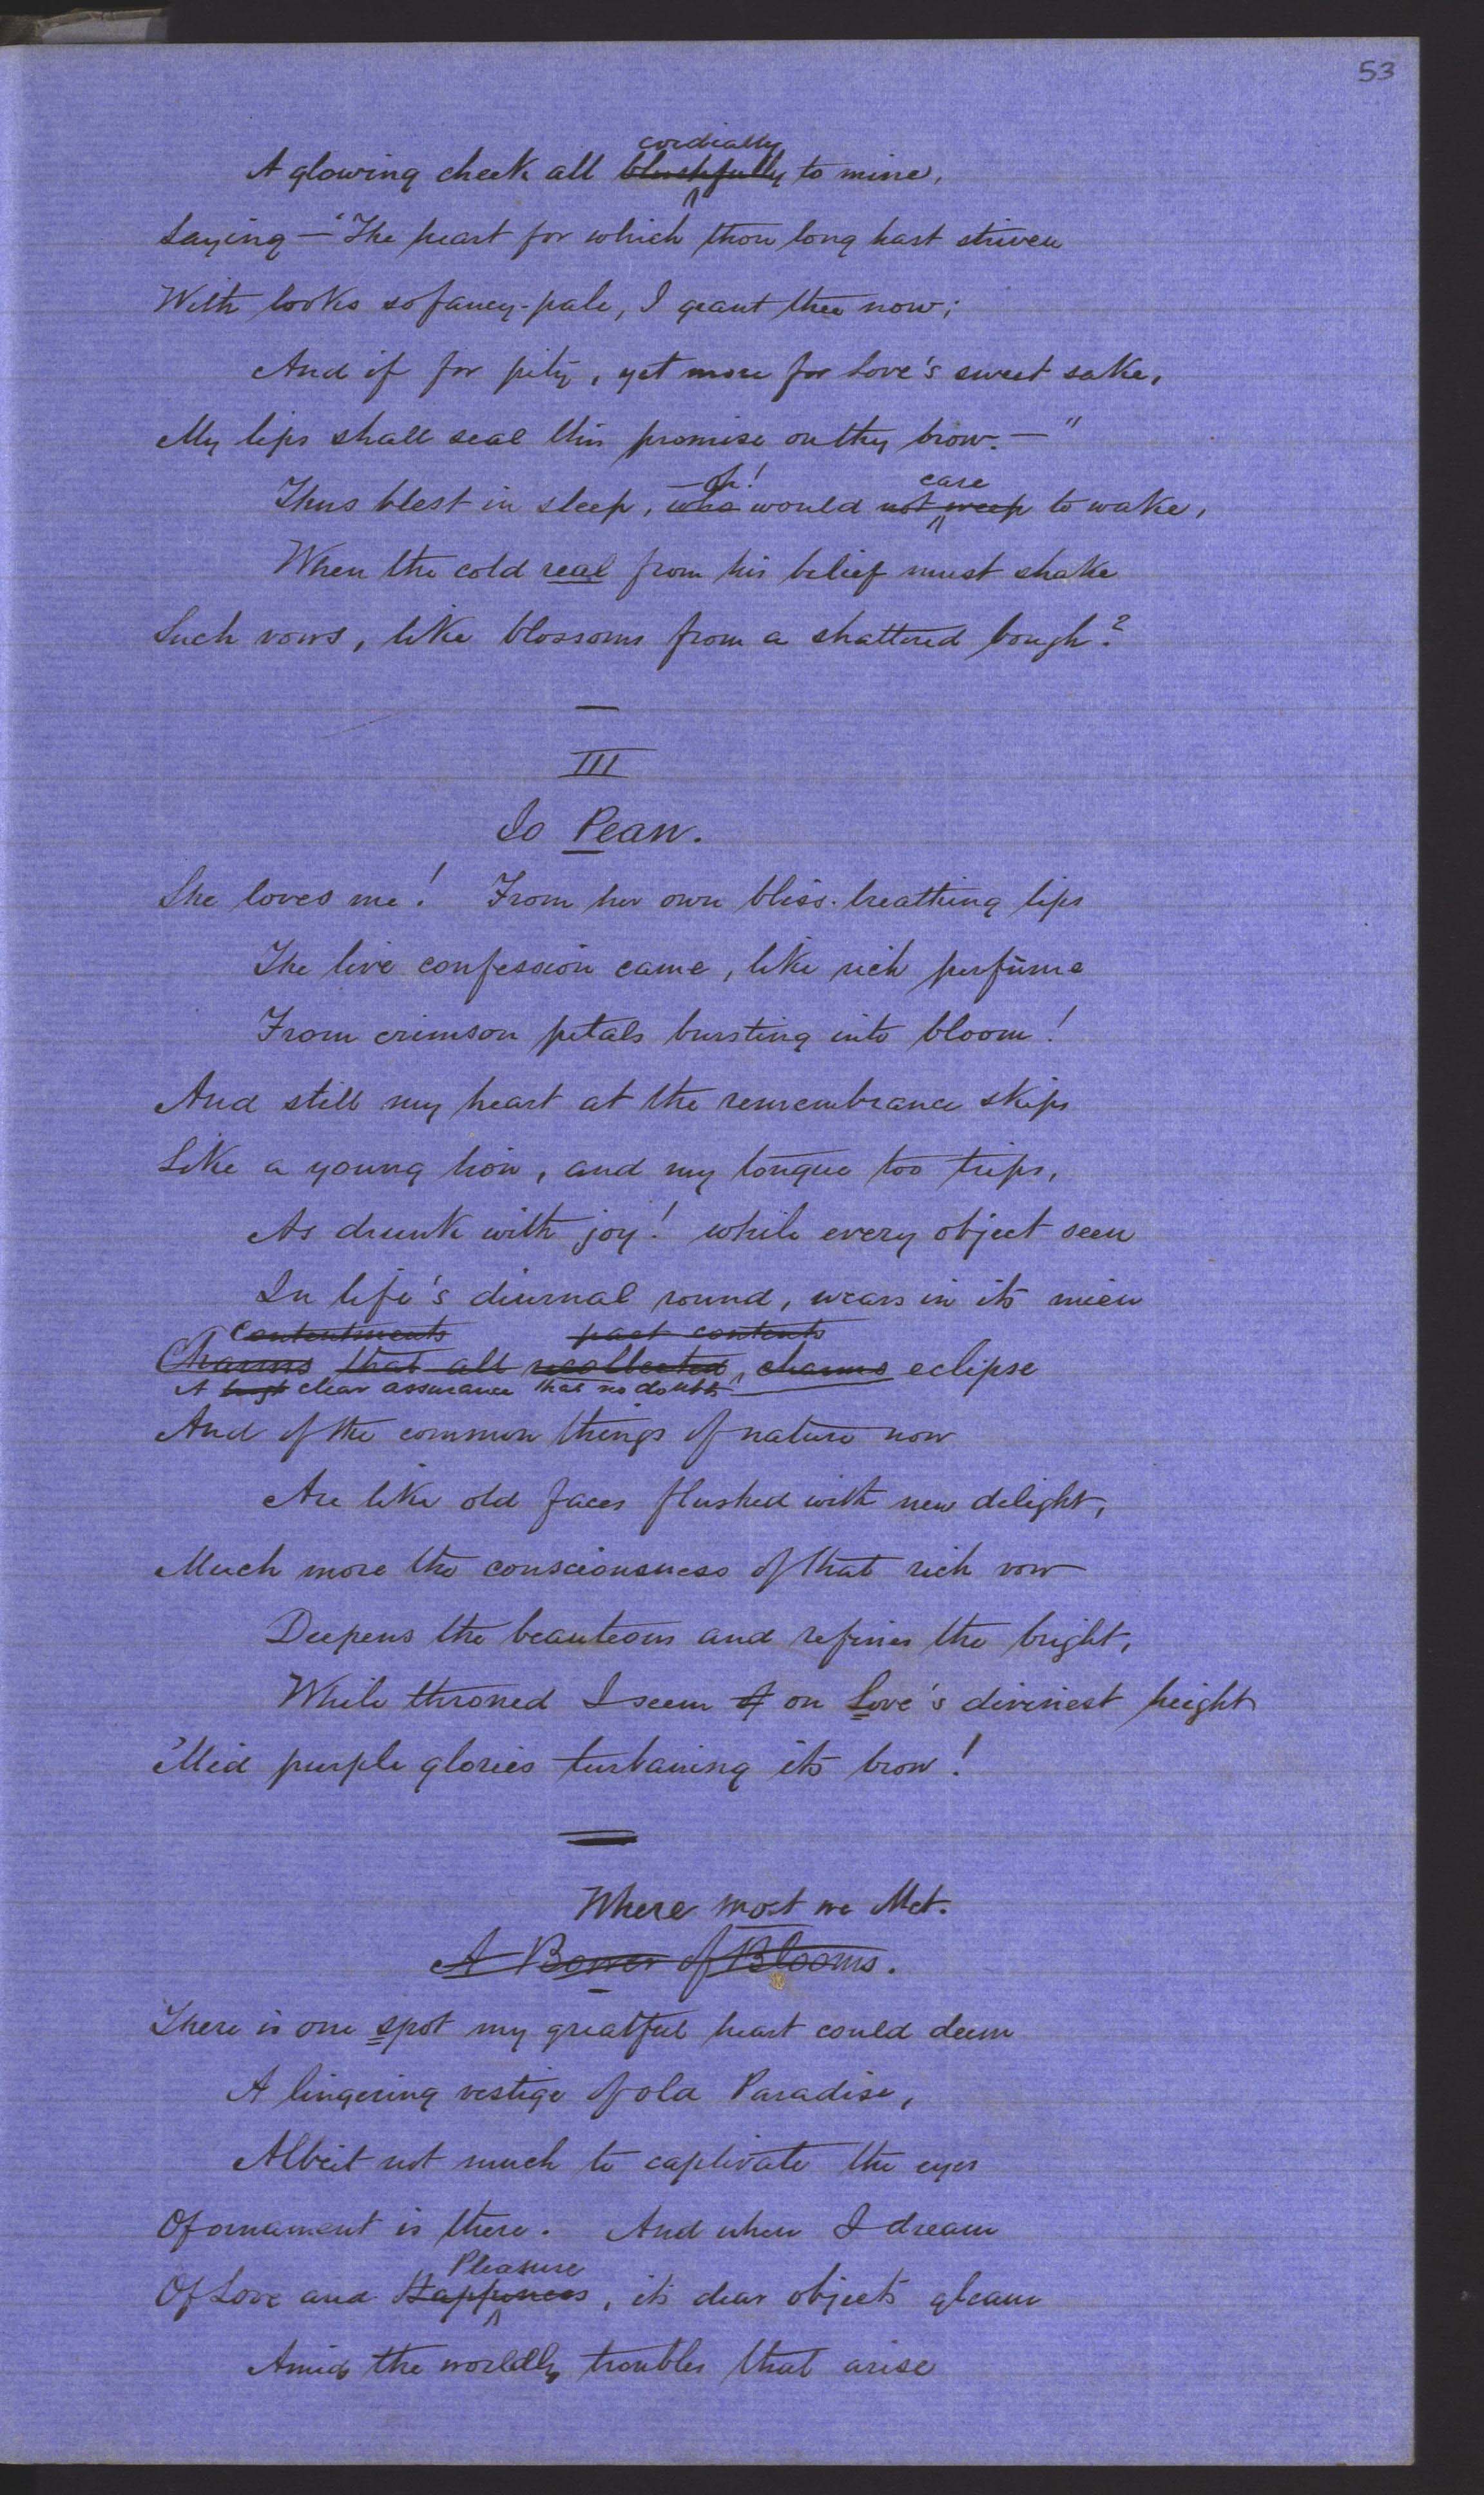 53
cordially
A glowing cheek all blushfully to mine,
Saying — "The heart for which thou long hast striven
With looks so fancy-pale, I grant thee now;
And if for pity, yet more for Love's sweet sake,
My lips shall seal this promise on thy brow. — "
oh! care
Thus blest in sleep, who would not weep to wake,
When the cold real from his belief must shake
Such vows, like blossoms from a shattered bough?
III
Io Pean.
She loves me! From her own bliss-breathing lips
The live confession came, like rich perfume
From crimson petals bursting into bloom!
And still my heart at the remembrance skips
Like a young lion, and my tongue too trips,
As drunk with joy! while every object seen
In life's diurnal round, wears in its mien
Contentments past contents
Charms that all recollected charms eclipse
A clear assurance that no doubts
And if the common things of nature now
Are like old faces flushed with new delight,
Much more the consciousness of that rich vow
Deepens the beauteous and refines the bright,
While throned I seem on Love's diviniest height
'Mid purple glories turbaning its brow!
Where most we Met.
A Bower of Blooms.
There is one spot my greatful heart could deem
A lingering vestige of old Paradise,
Albeit not much to captivate the eyes
Of ornament is there. And when I dream
Pleasure
Of Love and Happiness, its dear objects gleam
Amid the worldly troubles that arise